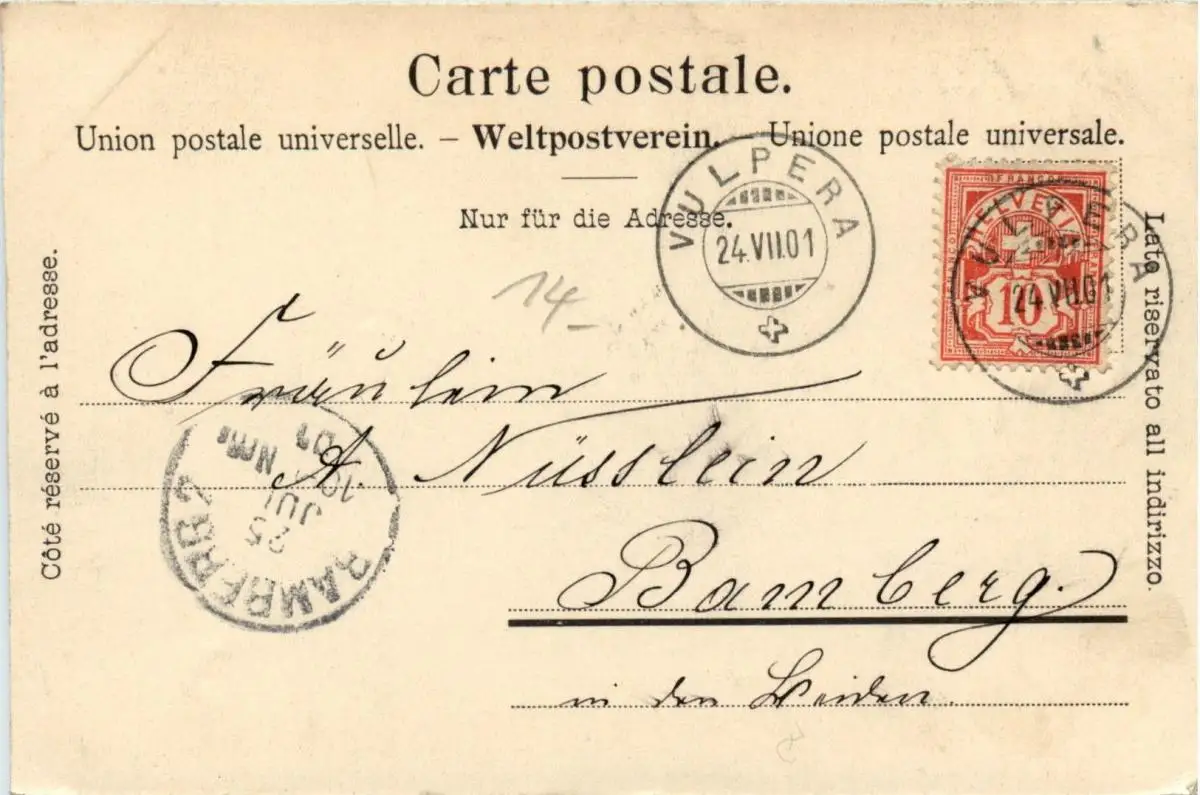 Carte postale.
Union postale universelle. – Weltpostverein. Unione postale universale.
Nur für die Adresse.
VULPERA
24.VII.01
FRANCO
HELVETIA
10
VULPERA
24.VII.01
Côté réservé à l'adresse.
Lato riservato all indirizzo.
14
Fräulein
A. Nüsslein
Bamberg.
in den Weiden.
BAMBERG 2
25
JUL
Nm.
01